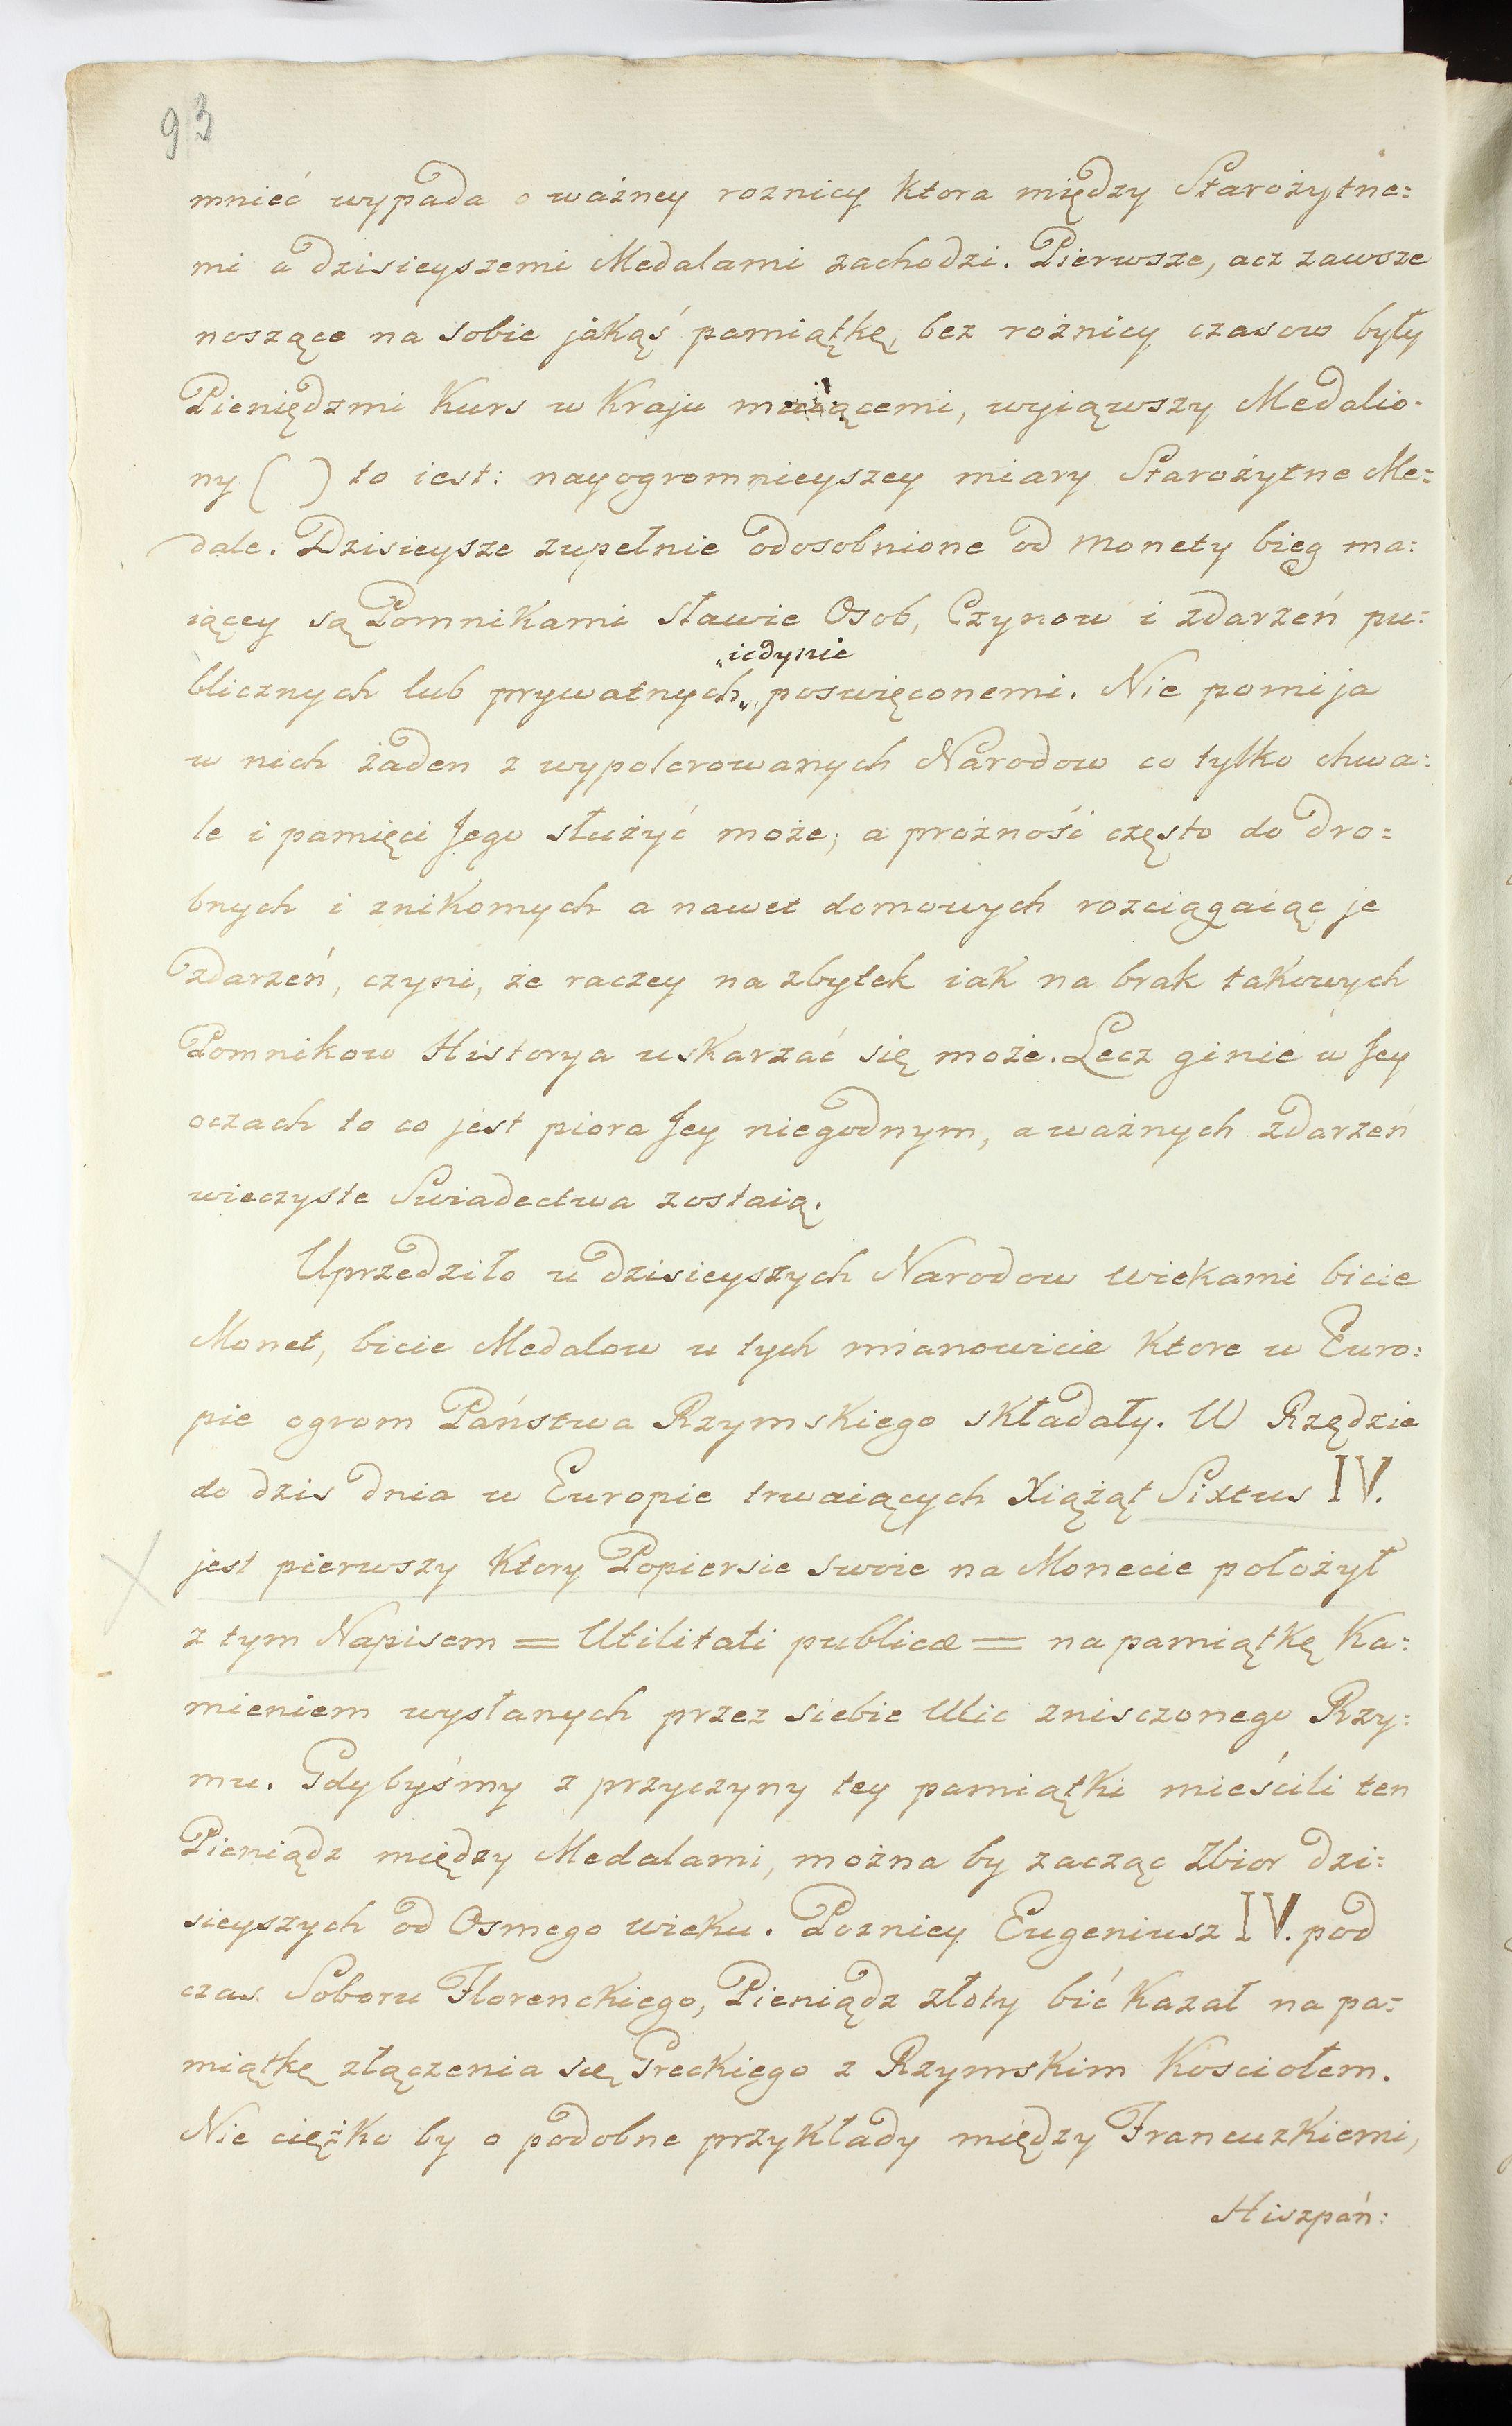 93
mnieć wypada o ważney roznicy ktora między Starożytne=
mi a dzisieyszemi Medalami zachodzi. Pierwsze, acz zawsze
noszące na sobie jakąś pamiątkę, bez rożnicy czasow były
Pieniędzmi Kurs w Kraju maiącemi, wyiąwszy Medalio-
ny ( ) to iest: nayogromnieyszey miary Starożytne Me=
dale. Dzisieysze zupełnie odosobnione od monety bieg ma=
iącey są Pomnikami sławie Osob, Czynow i zdarzeń pu=
„iedynie
blicznych lub prywatnych„ poswięconemi. Nie pomija
w nich żaden z wypolerowanych Narodow co tylko chwa=
le i pamięci Jego służyć może; a prożność często do dro=
bnych i znikomych a nawet domowych rozciągaiąc je
zdarzeń, czyni, że raczey na zbytek iak na brak takowych
Pomnikow Historya uskarzać się może. Lecz ginie w Jey
oczach to co jest piora Jey niegodnym, a ważnych zdarzeń
wieczyste Swiadectwa zostaią.
Uprzedziło u dzisieyszych Narodow wiekami bicie
Monet, bicie Medalow u tych mianowicie ktore w Euro=
pie ogrom Państwa Rzymskiego składały. W Rzędzie
do dzis dnia w Europie trwaiących Xiążąt Sixtus IV.
jest pierwszy ktory Popiersie swoie na Monecie położył
z tym Napisem = Utilitati publicæ = na pamiątkę Ka=
mieniem wysłanych przez siebie Ulic znisczonego Rzy=
mu. Gdybyśmy z przyczyny tey pamiątki mieścili ten
Pieniądz między Medalami, można by zacząc Zbior dzi=
sieyszych od Osmego wieku. Poznicy Eugeniusz IV. pod
czas Soboru Florenckiego, Pieniądz złoty bić kazał na pa=
miątkę złączenia się Greckiego z Rzymskim Kosciołem.
Nie ciężko by o podobne przykłady między Francuzkiemi,
Hiszpań: